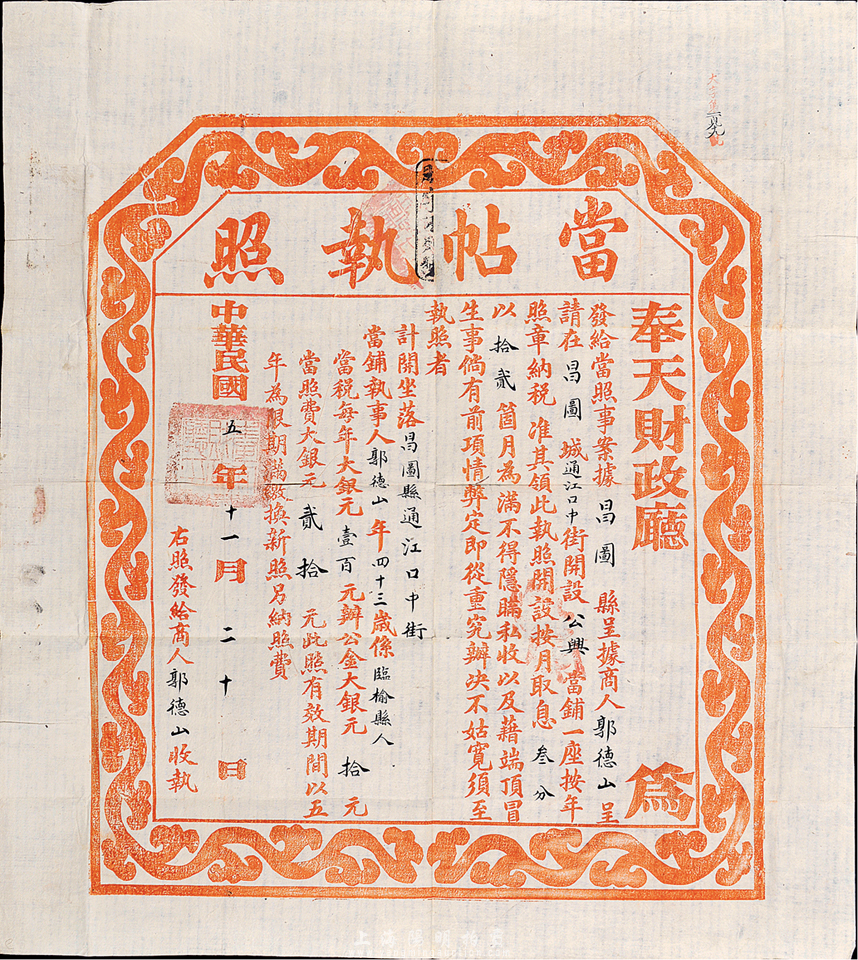 當帖執照
奉天財政廳 為
發給當照事案據 昌圖 縣呈據商人 郭德山 呈
請在 昌圖 城 通江口中 街開設 公興 當鋪一座按年
照章納稅 准其領此執照開設按月取息 叁分
以 拾貳 箇月為滿不得隱瞞私收以及藉端頂冒
生事倘有前項情弊定即從重究辦决不姑寬須至
執照者
計開坐落 昌圖縣通江口中街
當鋪執事人 郭德山 年 四十三 歲係 臨榆縣人
當稅每年大銀元 壹百 元辦公金大銀元 拾 元
當照費大銀元 貳拾 元此照有效期間以五
年為限期滿繳換新照另納照費
中華民國 五 年 十一 月 二十 日
右照發給商人 郭德山 收執